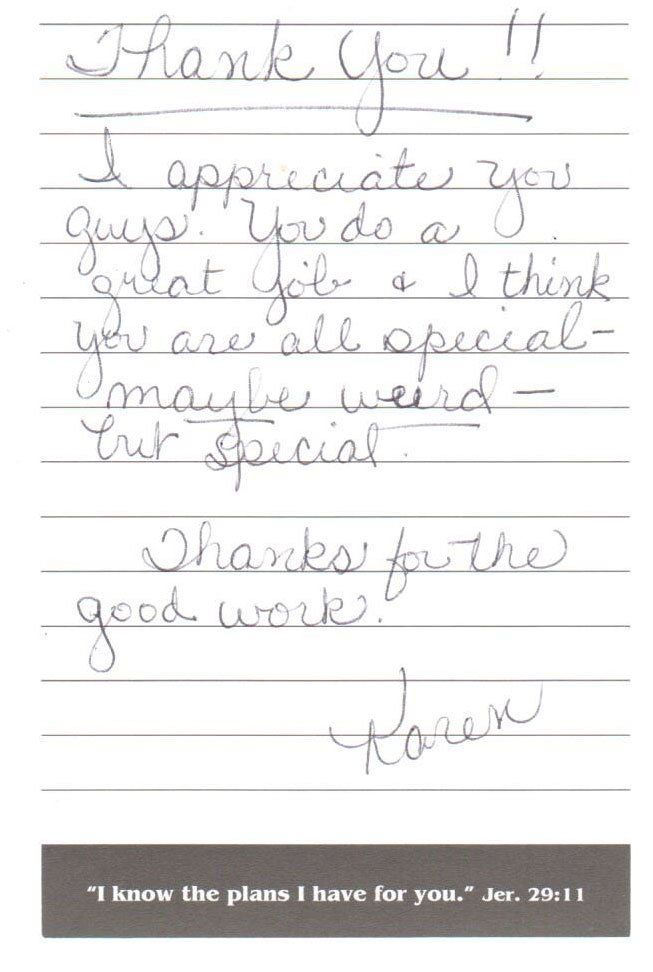 Thank You !!
I appreciate you
guys. You do a
great job & I think
you are all special-
maybe weird -
but special.
Thanks for the
good work.
Karen
"I know the plans I have for you." Jer. 29:11